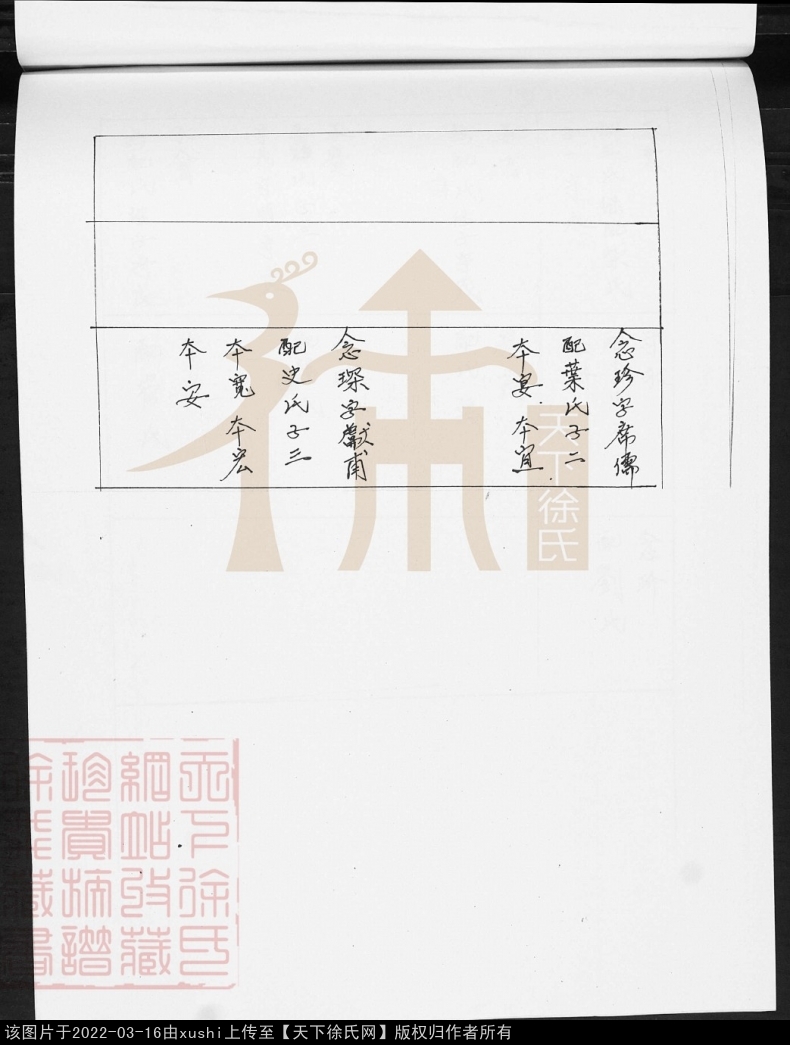 念珍字席儒
配葉氏子二
本宴 本宜
念琛字獻甫
配史氏子三
本寬 本宏
本安
天下徐氏
天下徐氏
網站收藏
珍貴族譜
徐氏藏書
该图片于2022-03-16由xushi上传至【天下徐氏网】版权归作者所有